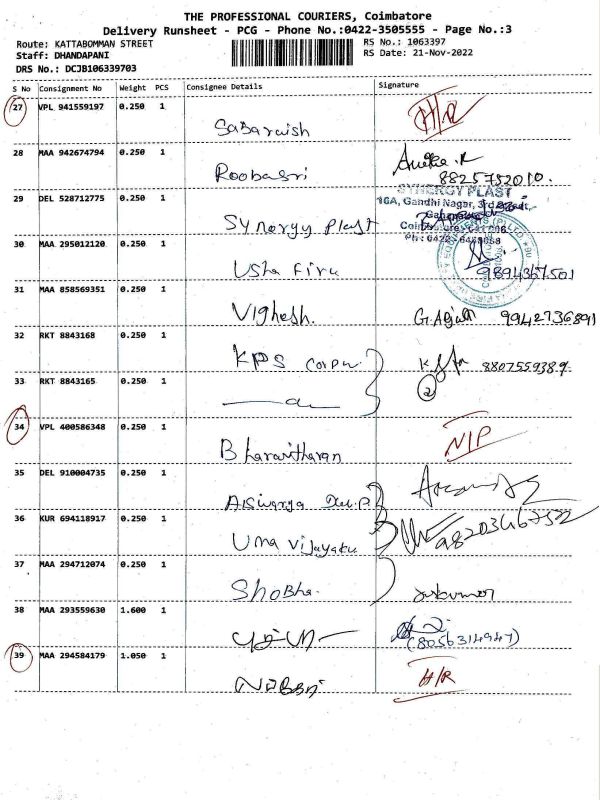 THE PROFESSIONAL COURIERS, Coimbatore
Delivery Runsheet - PCG - Phone No.:0422-3505555 - Page No.:3
Route: KATTABOMMAN STREET
RS No.: 1063397
Staff: DHANDAPANI
RS Date: 21-Nov-2022
DRS No.: DCJB106339703
S No Consignment No Weight PCS Consignee Details Signature
27 VPL 941559197 0.250 1
H/R
28 MAA 942674794 0.250 1
Roobasri 8825752010.
29 DEL 528712775 0.250 1
SYNERGY PLAST
16A, Gandhi Nagar,
Synergy Plast
30 MAA 295012120 0.250 1
Usha Fire 9894367501
31 MAA 858569351 0.250 1
Vighesh. 9942736891
32 RKT 8843168 0.250 1
KPS 8807559389
33 RKT 8843165 0.250 1
2
34 VPL 400586348 0.250 1
NIP
35 DEL 910004735 0.250 1
36 KUR 694118917 0.250 1
Uma
37 MAA 294712074 0.250 1
Shobha.
38 MAA 293559630 1.600 1
(8056314947)
39 MAA 294584179 1.050 1
H/R